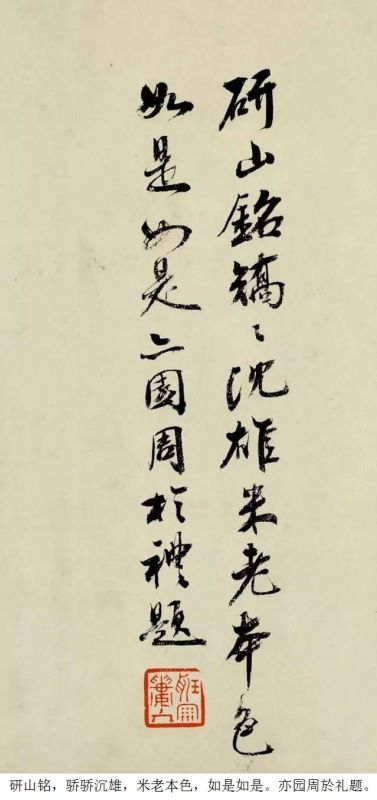 研山銘矯〻沈雄米老本色
如是如是亦園周於禮題
研山铭，骄骄沉雄，米老本色，如是如是。亦园周於礼题。